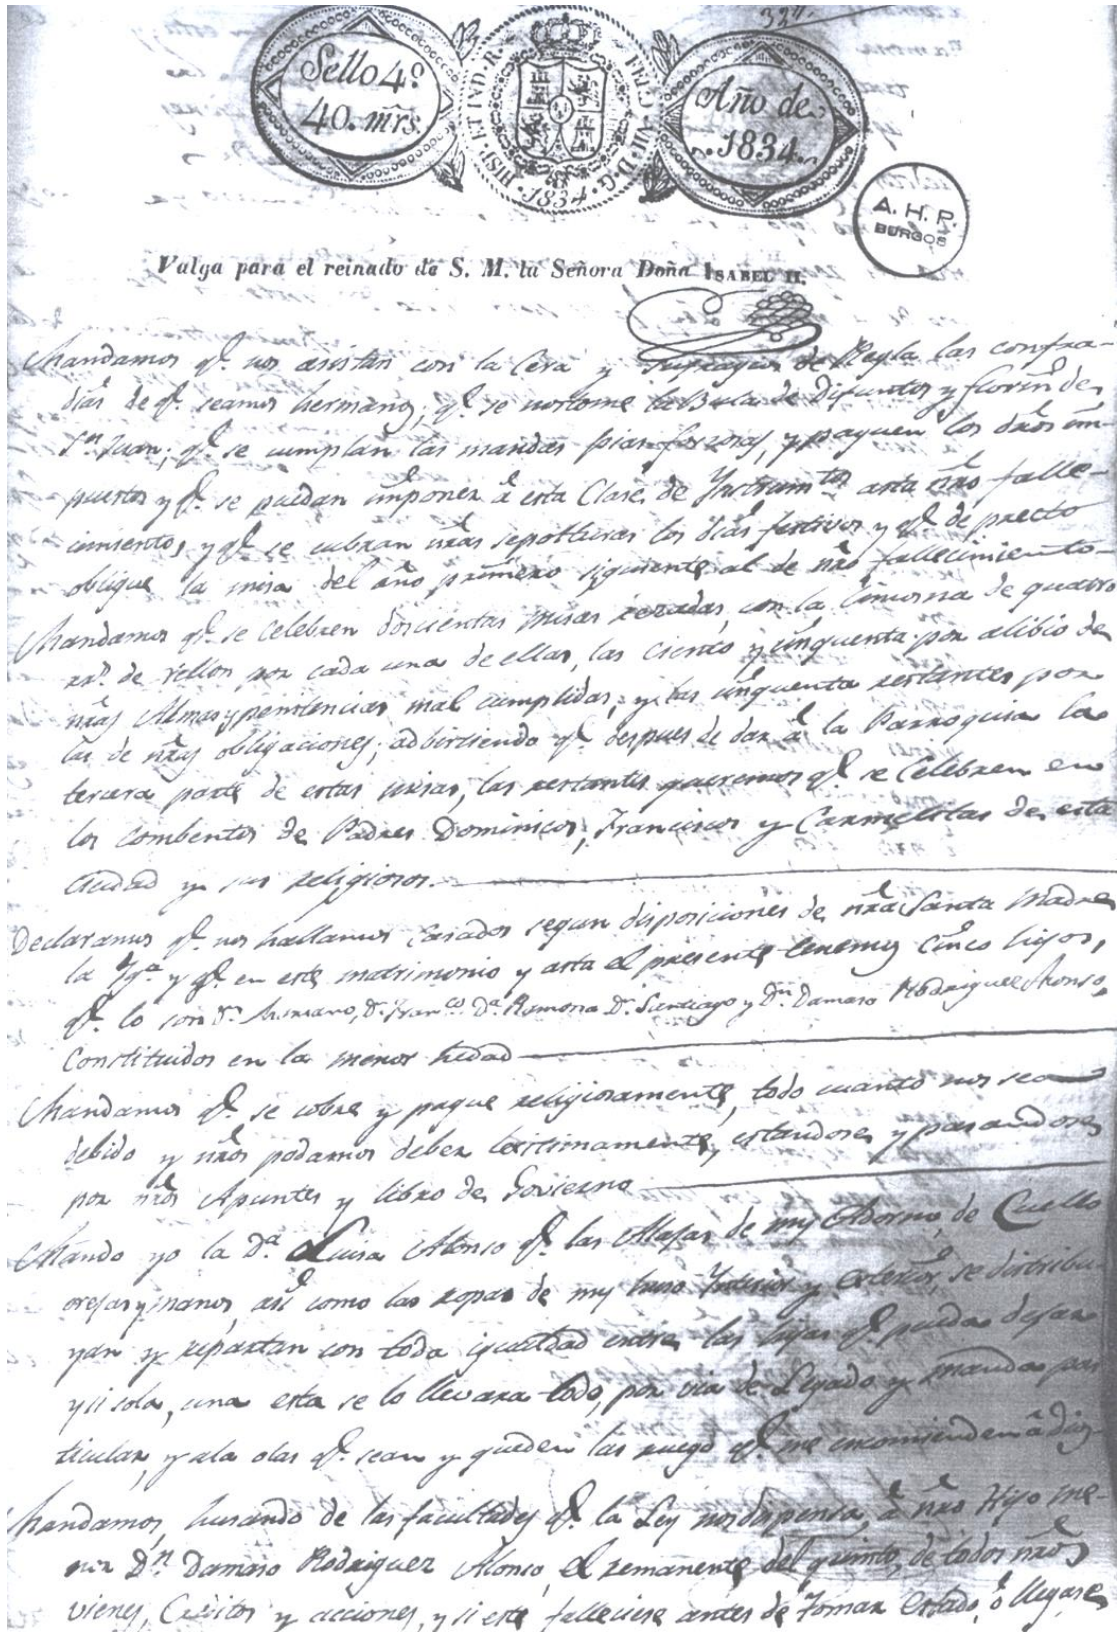 32
Sello 4º
40. mrs.
HISP. ET IND. R.
FERD. VII. D. G.
1834
Año de
1834.
A. H. P.
BURGOS
Valga para el reinado de S. M. la Señora Doña ISABEL II.
Mandamos qe. nos asistan con la Cera y sufragios de Regla las confra-
dias de qe. seamos hermanos; qe. se nos tome la Bula de Difuntos y florin de
Sn. Juan; qe. se cumplan las mandas pias forzosas, y paguen los dros im-
puestos y qe. se puedan imponer á esta Clase de Instrumtos. asta nro falle-
cimiento, y qe. se cubran nras sepolturas los dias festivos y qe. de precto
obligue la misa del año primero siguiente al de nro fallecimiento
Mandamos qe. se Celebren doscientas misas rezadas, con la limosna de quatro
rrs. de vellon por cada una de ellas, las ciento y cinquenta por alibio de
nras Almas y penitencias mal cumplidas, y las cinquenta restantes por
las de nras obligaciones; adbirtiendo qe. despues de dar á la Parroquia la
tercera parte de estas misas, las restantes queremos qe. se Celebren en
los Combentos de Padres Dominicos, Franciscos y Carmelitas de esta
Ciudad y sus religiosos.
Declaramos qe. nos hallamos Casados segun disposiciones de nra Santa Madre
la Yga. y qe. en este matrimonio y asta el presente tenemos Cinco hijos,
qe. lo son Dn. Mariano, Dn. Franco. Da. Ramona Dn. Santiago y Dn. Damaso Rodriguez Alonso,
Constituidos en la menor hedad
Mandamos qe. se cobre y pague religiosamente, todo cuanto nos sea
debido y nros podamos deber lexitimamente, estandose y pasandose
por nros Apuntes y libro de Govierno
Mando yo la Da. Luisa Alonso qe. las Alajas de my Adorno, de Cuello
orejas y manos, asi como las ropas de my huso Interior y exterior, se distribu-
yan y repartan con toda igualdad entre las hijas qe. pueda dejar
y si sola, una esta se lo llevara todo, por via de Legado y manda par
ticular, y ala olas qe. sean y queden las ruego qe. me encomienden á Dios
Mandamos, husando de las facultades qe. la Ley nos dispensa, á nro Hijo me-
nor Dn. Damaso Rodriguez Alonso, el remanente del quinto de todos nros
vienes, Creditos y acciones, y si este falleciese antes de Tomar estado, ó llegase